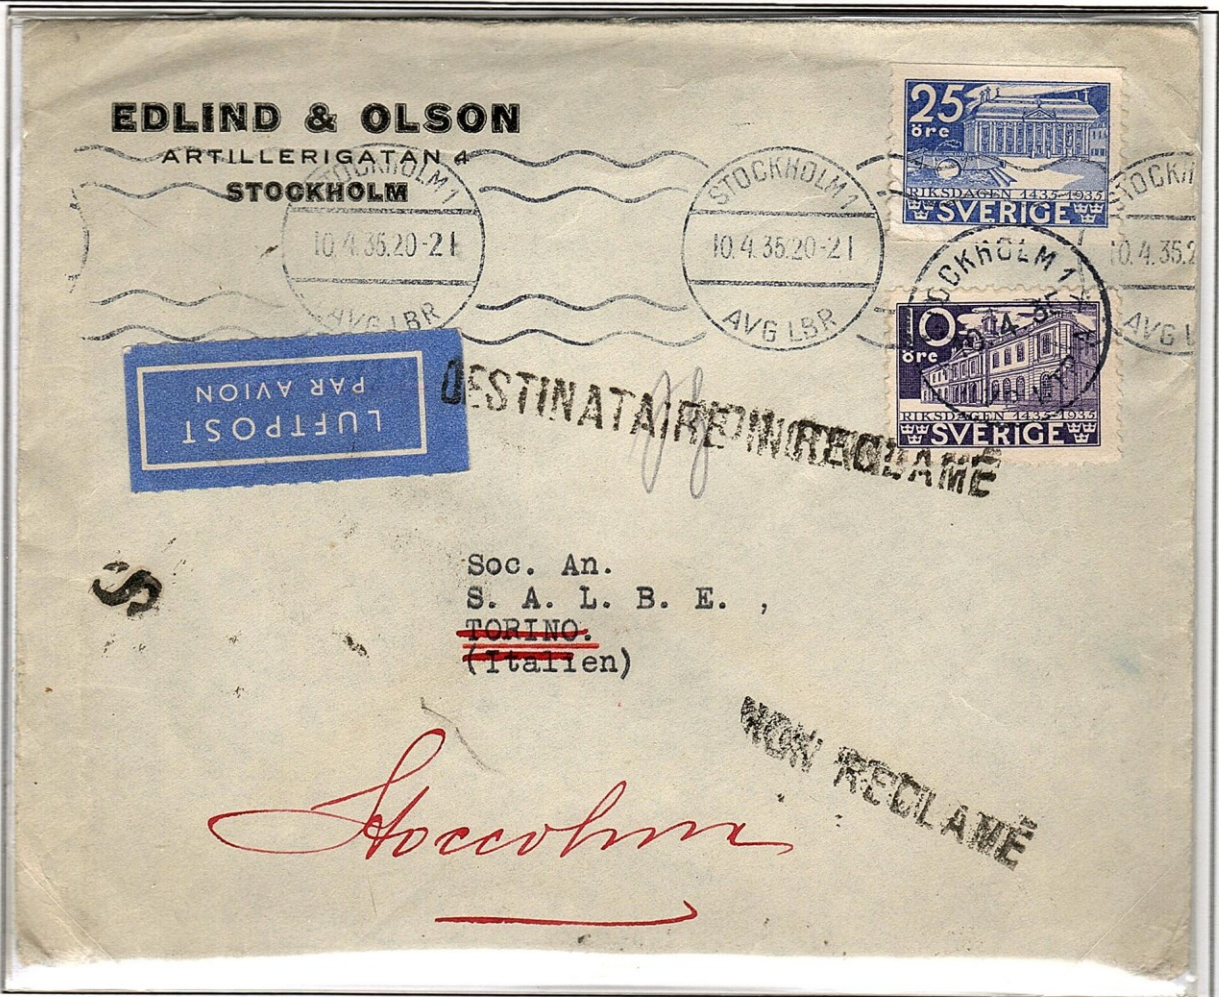 EDLIND & OLSON
ARTILLERIGATAN 4
STOCKHOLM
STOCKHOLM 1
10.4.35.20-21
AVG LBR
STOCKHOLM 1
10.4.35.20-21
AVG LBR
STOCKH
10.4.35.2
AVG L
25
öre
RIKSDAGEN 1435-1935
SVERIGE
STOCKHOLM 1
10
öre
RIKSDAGEN 1435-1935
SVERIGE
LUFTPOST
PAR AVION
DESTINATAIRE
RECLAMÉ
S
Soc. An.
S. A. L. B. E. ,
TORINO.
(Italien)
NON RECLAMÉ
Stoccolma